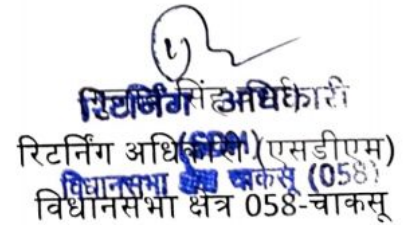 रिटर्निंग अधिकारी
रिटर्निंग अधिकारी (एसडीएम)
विधानसभा चाकसू (058)
विधानसभा क्षेत्र 058-चाकसू